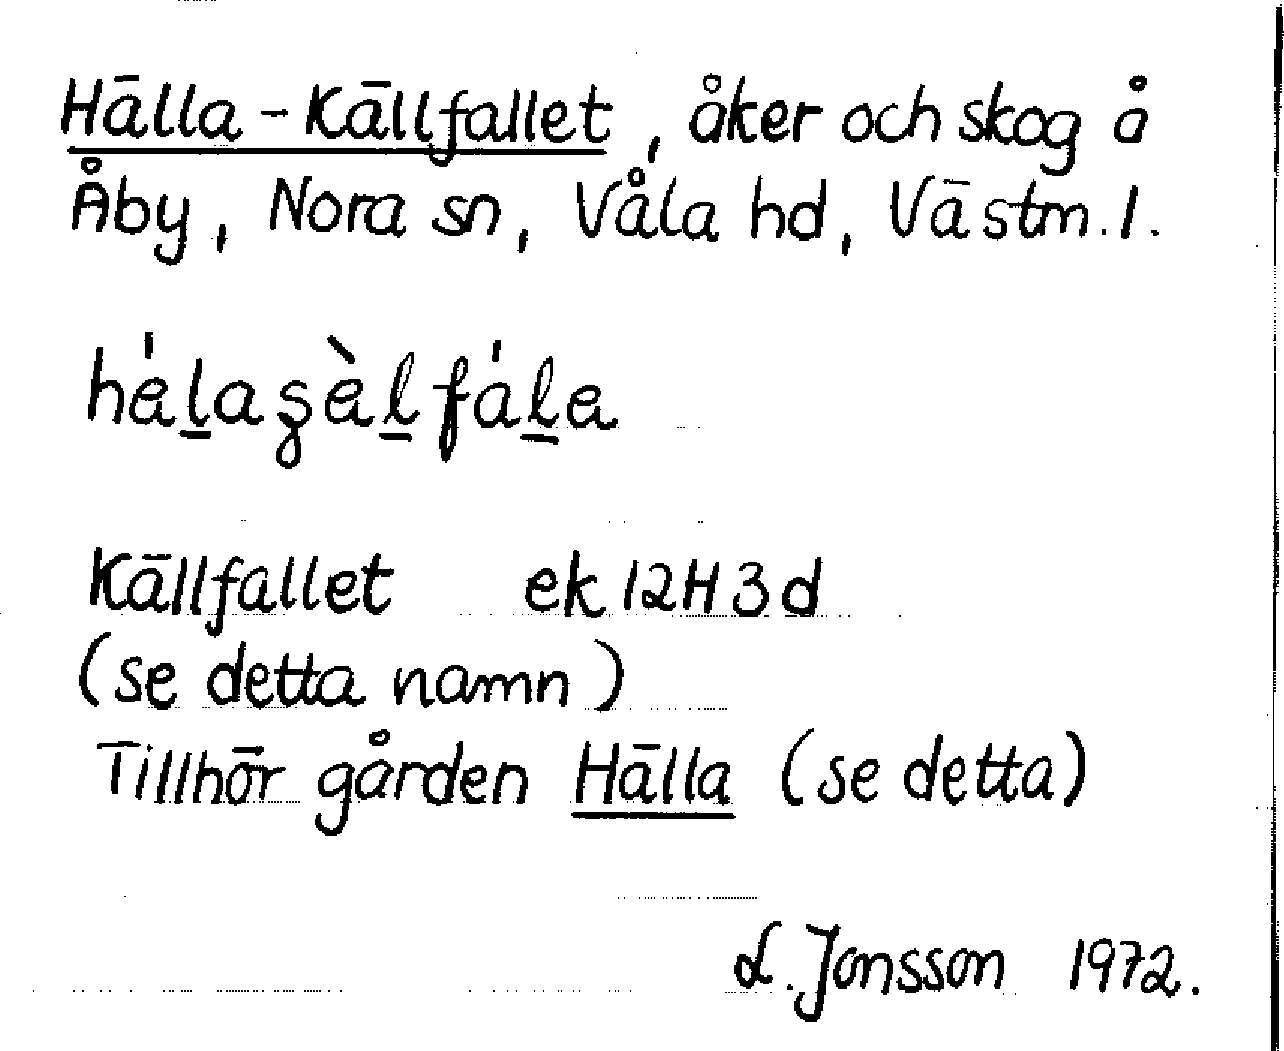 Hälla-Källfallet, åker och skog å
Åby, Nora sn, Våla hd, Västm. l.
Källfallet ek 12H3d
(se detta namn)
Tillhör gården Hälla (se detta)
L. Jonsson 1972.